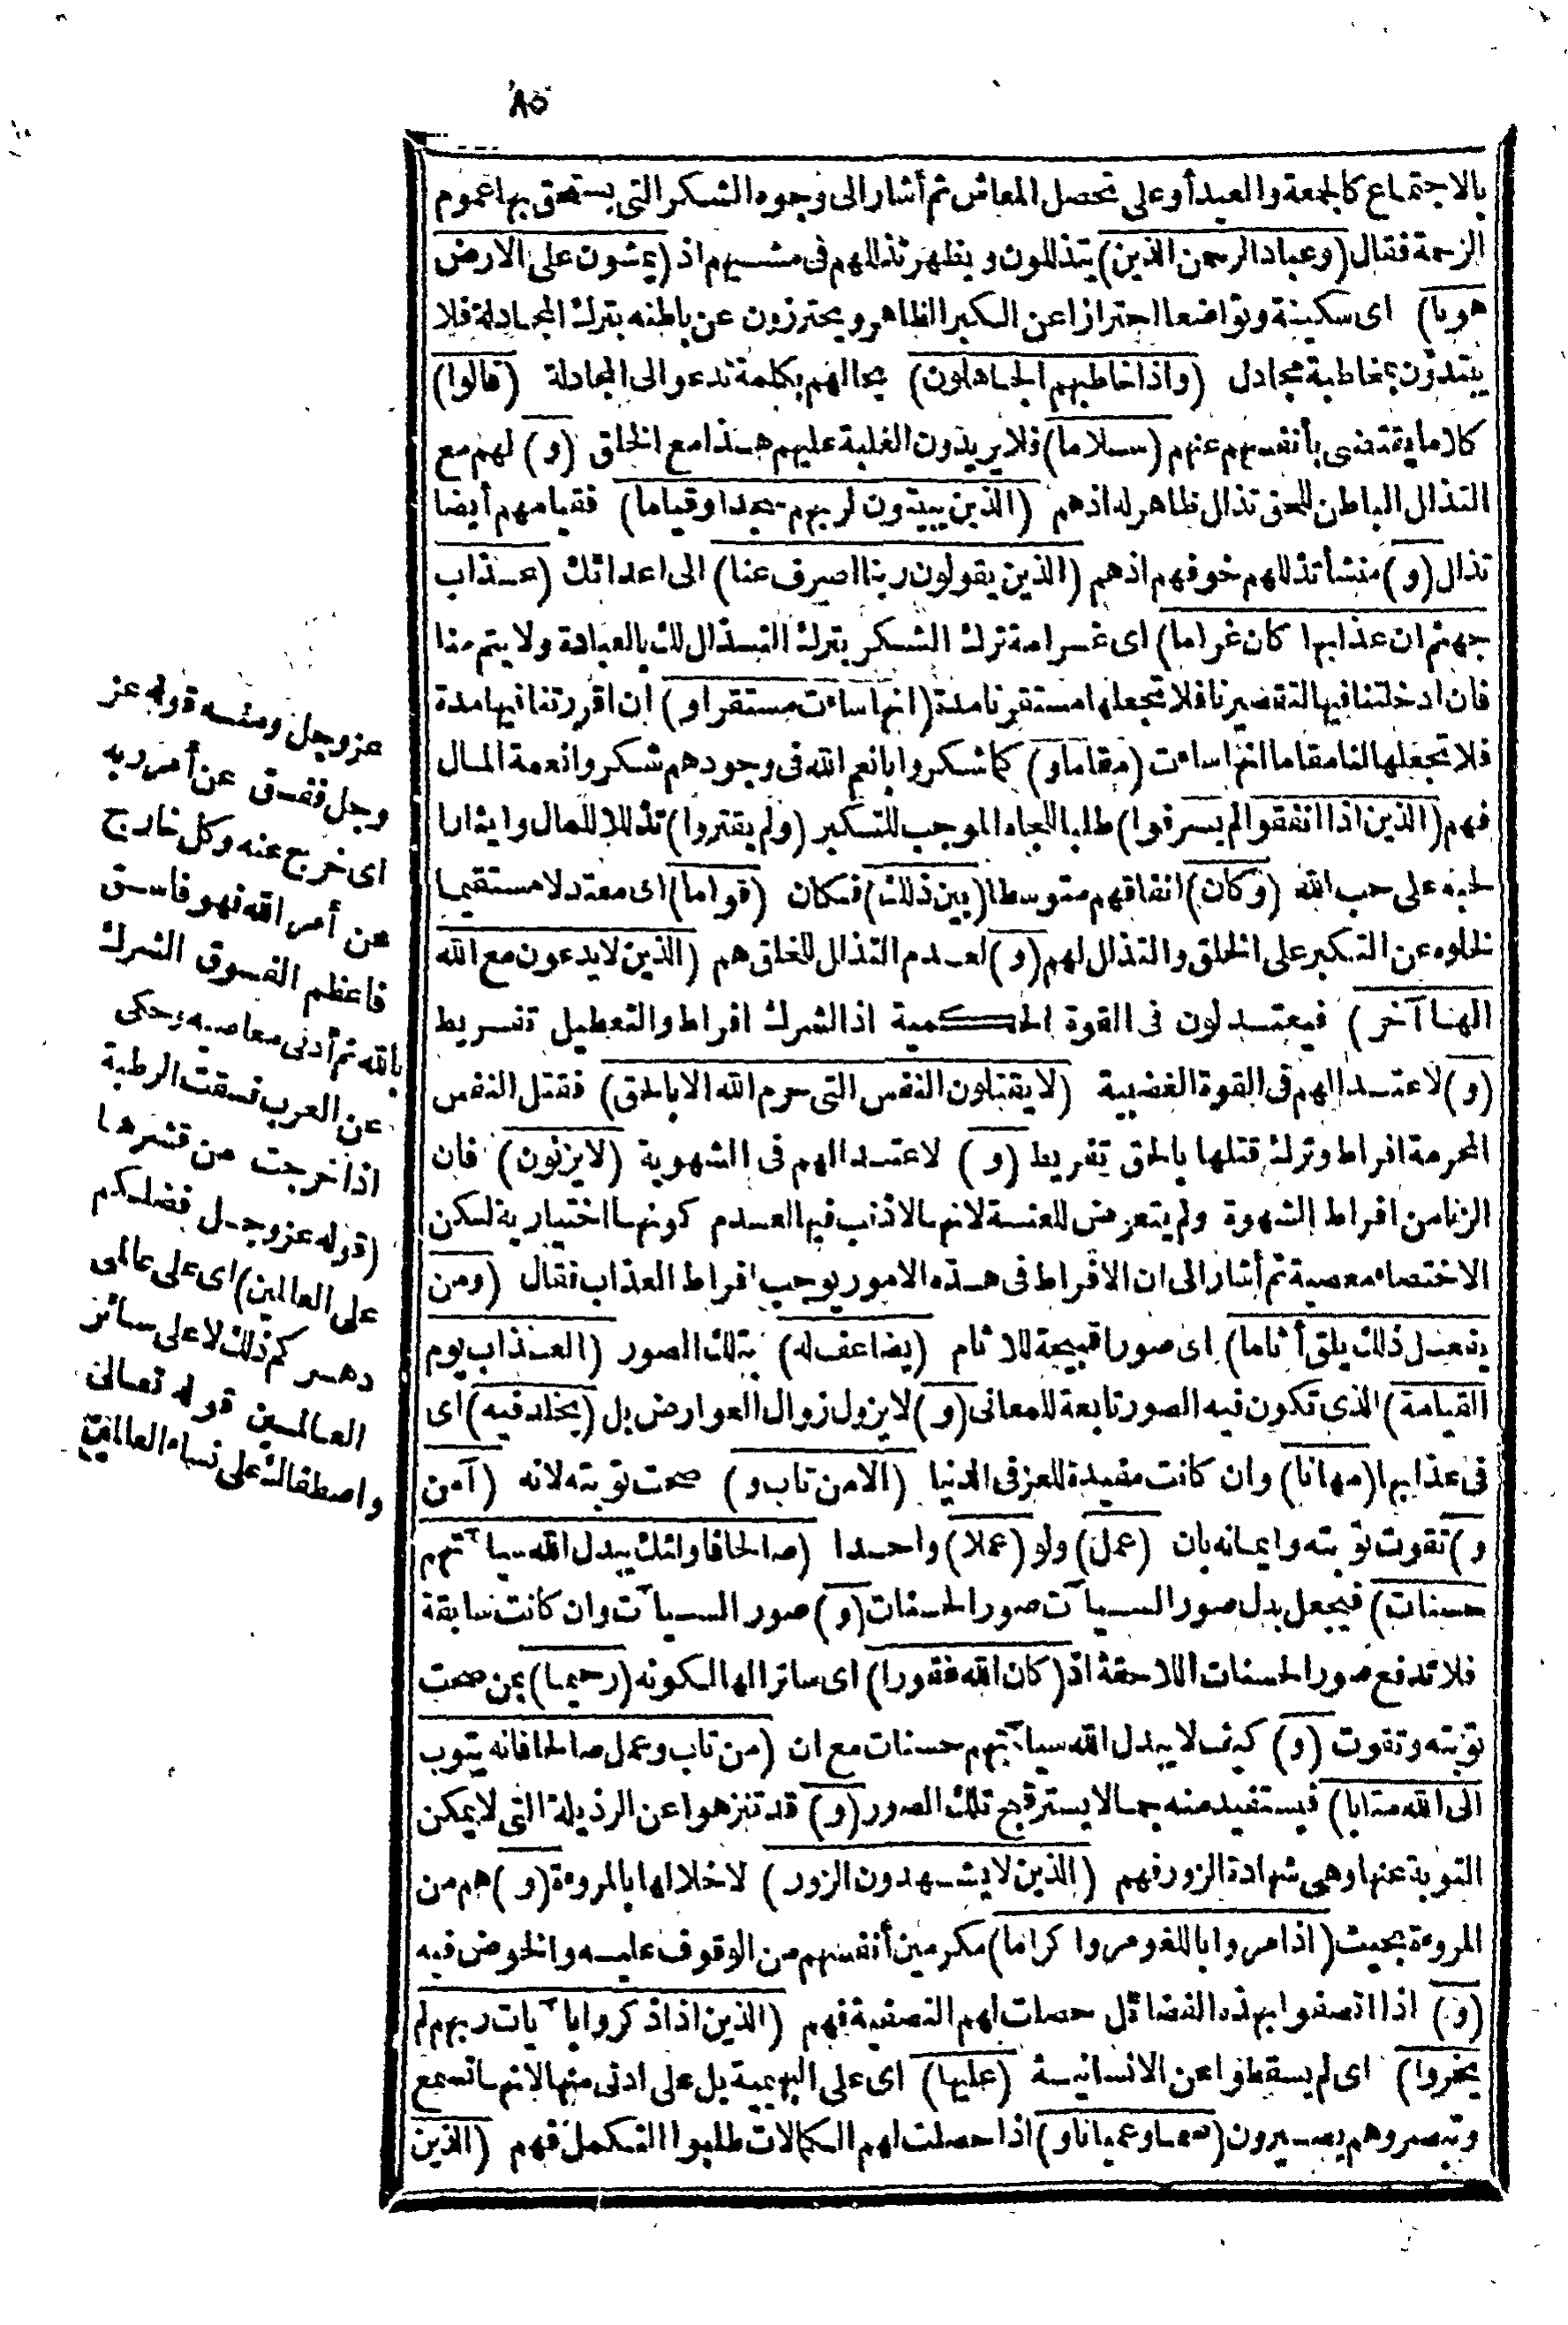 ٨٥
بالاجتماع كالجمعة والعيد أو على تحصل المعاش ثم أشار الى وجوه الشكر التى يستحق بها عموم
الرحمة فقال (وعباد الرحمن الذين) يتذللون ويظهر تذللهم فى مشيهم اذ (يمشون على الارض
هونا) اى سكينة وتواضعا احترازا عن الكبر الظاهر ويحترزون عن باطنه بترك المجادلة فلا
يبتدؤن بمخاطبة مجادل (واذا خاطبهم الجاهلون) بجالهم بكلمة تدعو الى المجادلة (قالوا)
كلاما يقتضى بأنفسهم عنهم (سلاما) فلا يريدون الغلبة عليهم هذا مع الخلق (و) لهم مع
التذلل الباطن للحق تذلل ظاهر له اذهم (الذين يبيتون لربهم سجدا وقياما) فقيامهم أيضا
تذلل (و) منشأ تذللهم خوفهم اذهم (الذين يقولون ربنا اصرف عنا) الى اعدائك (عذاب
جهنم ان عذابها كان غراما) اى غرامة ترك الشكر بترك التذلل لك بالعبادة ولا يتم منا
فان ادخلتنا فيها لتقصيرنا فلا تجعلها مستقرنا مدة (انها ساءت مستقرا و) ان اقررتنا فيها مدة
فلا تجعلها لنا مقاما انها ساءت (مقاما و) كما شكروا بانعم الله فى وجودهم شكروا نعمة المال
فهم (الذين اذا انفقوا لم يسرفوا) طلبا للجاه الموجب للتكبر (ولم يقتروا) تذللا للمال وايثارا
لحبه على حب الله (وكان) انفاقهم متوسطا (بين ذلك) فكان (قواما) اى معتدلا مستقيما
لخلوه عن التكبر على الخلق والتذلل لهم (و) لعدم التذلل للخلق هم (الذين لا يدعون مع الله
الها آخر) فيعتدلون فى القوة الحكمية اذ الشرك افراط والتعطيل تفريط
(و) لاعتدالهم فى القوة الغضبية (لا يقتلون النفس التى حرم الله الا بالحق) فقتل النفس
المحرمة افراط وترك قتلها بالحق تفريط (و) لاعتدالهم فى الشهوية (لا يزنون) فان
الزنا من افراط الشهوة ولم يتعرض للعنة لانها لا ذنب فيها لعدم كونها اختيارية لكن
الاختصاء معصية ثم أشار الى ان الافراط فى هذه الامور يوجب افراط العذاب فقال (ومن
يفعل ذلك يلق أثاما) اى صورا قبيحة للاثام (يضاعف له) بتلك الصور (العذاب يوم
القيامة) الذى تكون فيه الصور تابعة للمعانى (و) لا يزول زوال العوارض بل (يخلد فيه) اى
فى عذابها (مهانا) وان كانت مفيدة للعز فى الدنيا (الا من تاب و) صحت توبته لانه (آمن
و) تقوت توبته وايمانه بان (عمل) ولو (عملا) واحدا (صالحا فاولئك يبدل الله سيآتهم
حسنات) فيجعل بدل صور السيآت صور الحسنات (و) صور السيآت وان كانت سابقة
فلا تدفع صور الحسنات اللاحقة اذ (كان الله غفورا) اى ساترا لها لكونه (رحيما) بمن صحت
توبته وتقوت (و) كيف لا يبدل الله سيآتهم حسنات مع ان (من تاب وعمل صالحا فانه يتوب
الى الله متابا) فيستفيد منه جمالا يستر قبح تلك الصور (و) قد تنزهوا عن الرذيلة التى لا يمكن
التوبة عنها وهى شهادة الزور فهم (الذين لا يشهدون الزور) لاخلالها بالمروءة (و) هم من
المروءة بحيث (اذا مروا باللغو مروا كراما) مكرمين أنفسهم من الوقوف عليه والخوض فيه
(و) اذا اتصفوا بهذه الفضائل حصلت لهم التصفية فهم (الذين اذا ذكروا بآيات ربهم لم
يخروا) اى لم يسقطوا عن الانسانية (عليها) اى على البهيمية بل على ادنى منها لانها تسمع
وتبصر وهم يصيرون (صما وعميانا و) اذا حصلت لهم الكمالات طلبوا التكمل فهم (الذين
عز وجل ومنه قوله عز
وجل ففسق عن أمر ربه
اى خرج عنه وكل خارج
عن أمر الله فهو فاسق
فاعظم الفسوق الشرك
بالله ثم أدنى معاصيه وحكى
عن العرب فسقت الرطبة
اذا خرجت من قشرها
(قوله عز وجل فضلكم
على العالمين) اى على عالمى
دهركم ذلك لا على سائر
العالمين قوله تعالى
واصطفاك على نساء العالمين